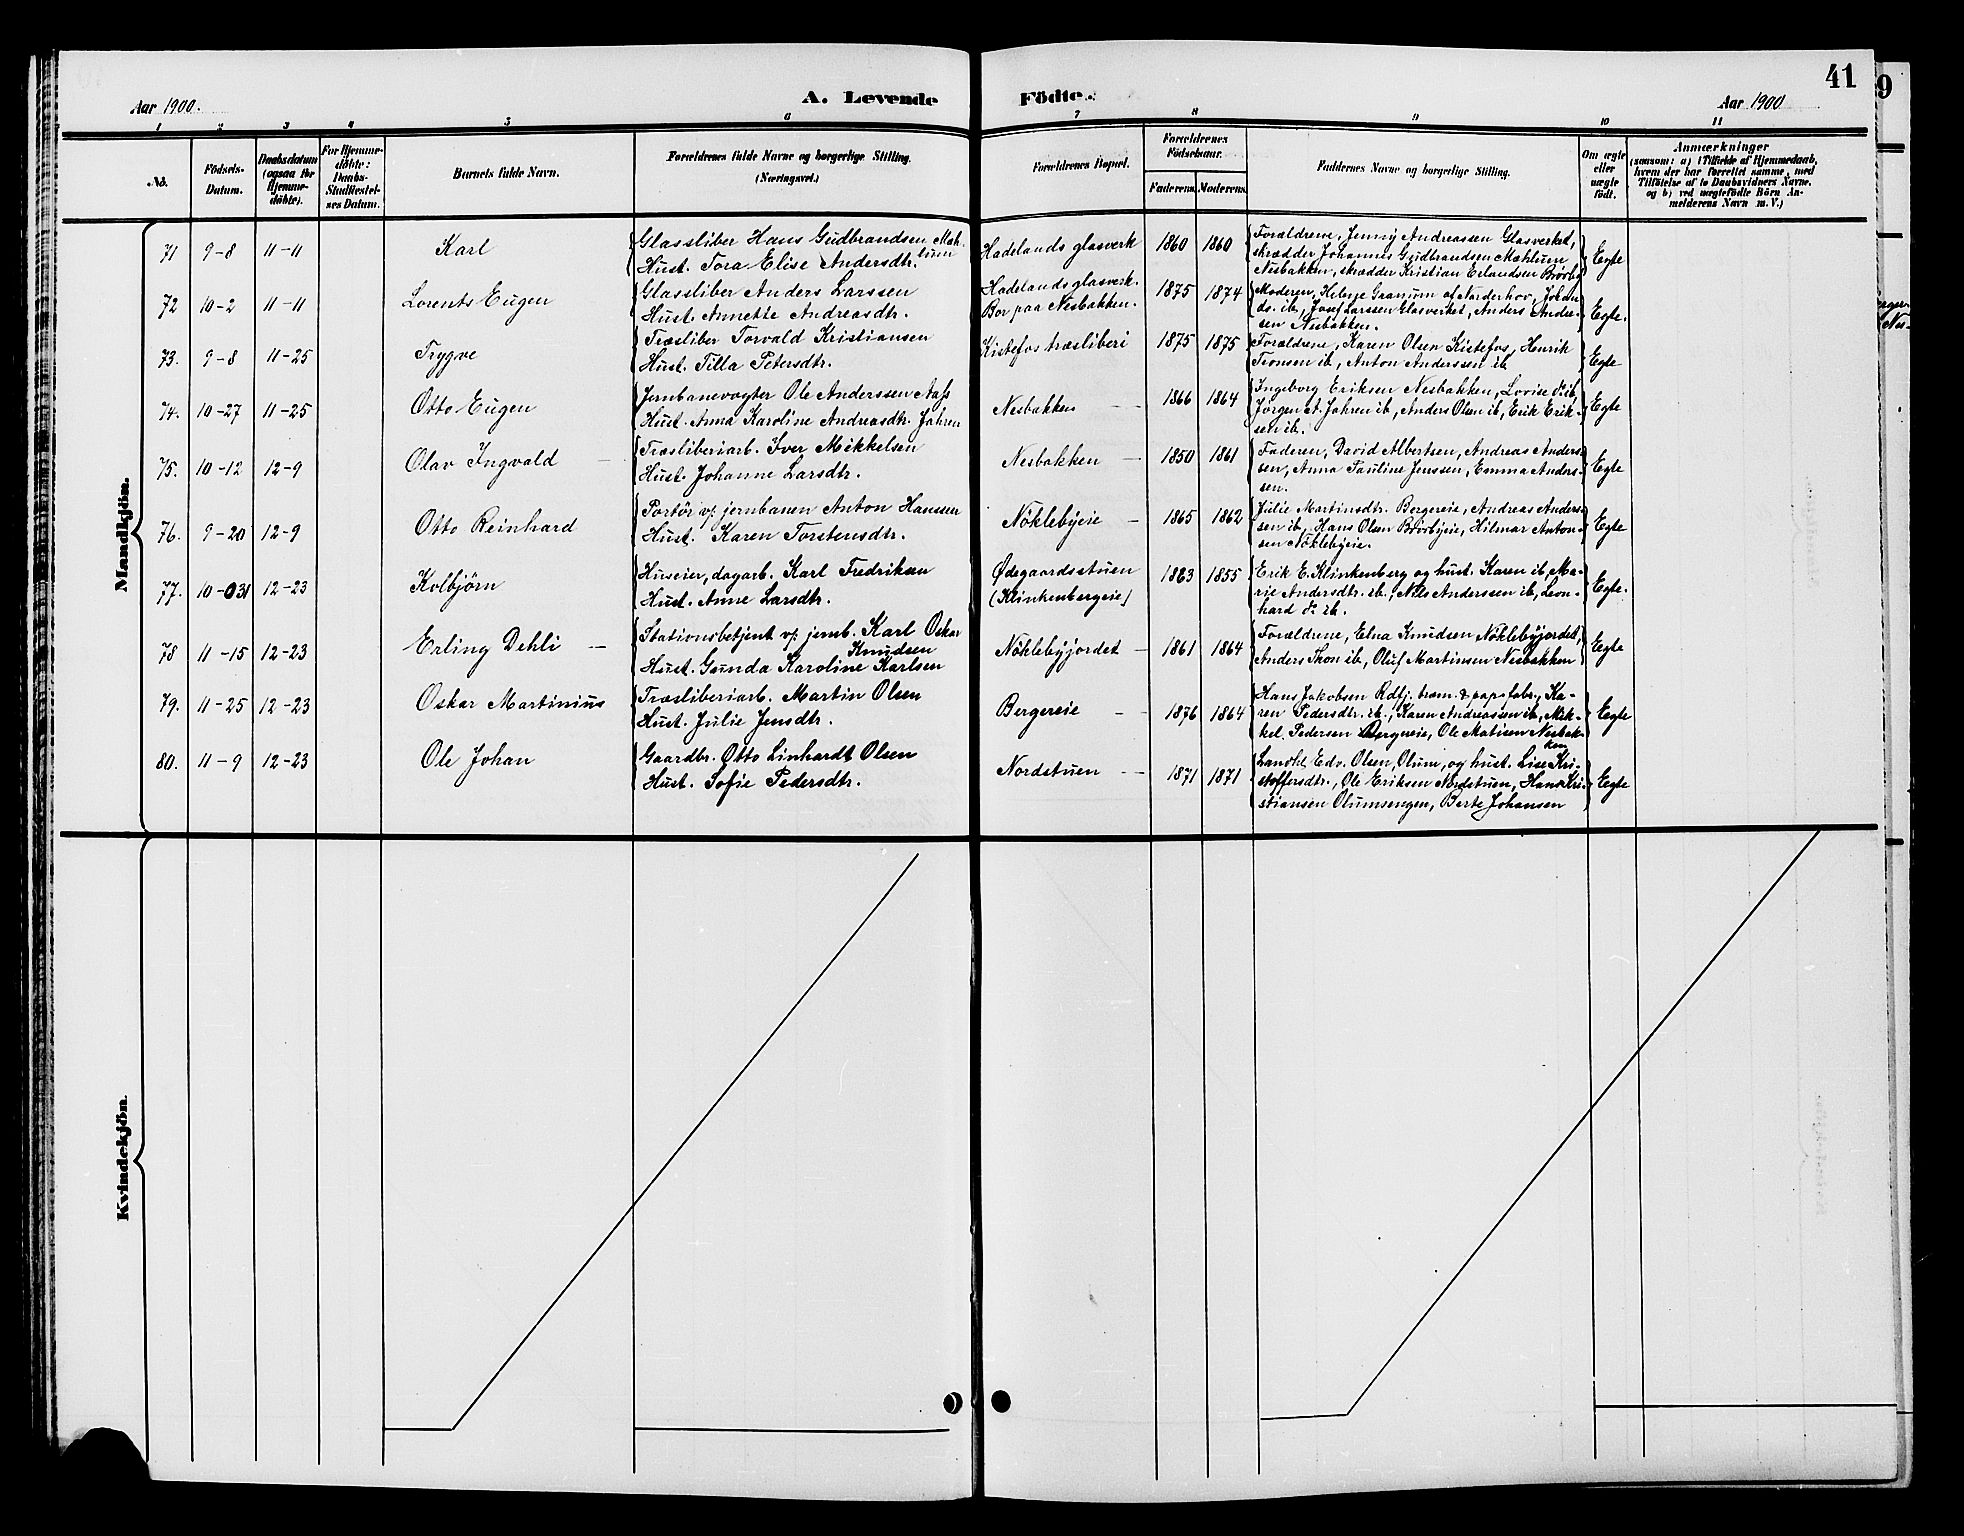 41
9
Aar 1900.
A. Levende
Födte.
Aar 1900
1 2 3 4 5 6 7 8 9 10 11
No.
Födsels-
Datum.
Daabsdatum
(ogsaa for
Hjemme-
döbte).
For Hjemme-
döbte:
Daabs-
Stadfæstel-
ses Datum.
Barnets fulde Navn.
Forældrenes fulde Navne og borgerlige Stilling.
(Næringsvei.)
Forældrenes Bopæl.
Forældrenes
Födselsaar.
Faderens. Moderens.
Faddernes Navne og borgerlige Stilling.
Om ægte
eller
uægte
født.
Anmærkninger
(saasom: a) i Tilfælde af Hjemmedaab,
hvem der har forrettet samme, med
Tilföielse af to Daabsvidners Navne,
og b) ved uægtefödte Börn An-
melderens Navn m. V.)
Mandkjön.
71 9-8 11-11 Karl
Glassliber Hans Gudbrandsen Mæh-
lum
Hust. Tora Elise Andersdtr.
Hadelands glasverk 1860 1860
Forældrene, Jenny Andreassen Glasverket,
skrædder Johannes Gudbrandsen Mæhlum
Nesbakken, skrædder Kristian Erlandsen Brørby
Egte
72 10-2 11-11 Lorents Eugen
Glassliber Anders Larssen
Hust. Annette Andreasdtr.
Hadelands glasverk.
Bor paa Nesbakken.
1875 1874
Moderen, Helene Granum af Norderhov, Johan
do. ib., Josef Larssen Glasverket, Anders Ander-
sen Nesbakken.
Egte.
73. 9-8 11-25 Trygve
Træsliber Torvald Kristiansen
Hust. Tilla Petersdtr.
Kistefos træsliberi 1875 1875
Forældrene, Karen Olsen Kistefos, Henrik
Tronsen ib, Anton Anderssen ib.
Egte
74. 10-27 11-25 Otto Eugen
Jernbanevogter Ole Anderssen Aass
Hust. Anna Karoline Andreasdtr. Jahren
Nesbakken 1866 1864
Ingeborg Eriksen Nesbakken, Lovise do ib,
Jørgen A. Jahren ib, Anders Olsen ib, Erik Erik-
sen ib.
Egte
75. 10-12 12-9 Olav Ingvald
Træsliberiarb. Iver Mikkelsen
Hust. Johanne Larsdtr.
Nesbakken 1850 1861
Faderen, David Albertsen, Andreas Anders-
sen, Anna Pauline Jenssen, Emma Anders-
sen.
Egte
76. 9-20 12-9 Otto Reinhard
Portör v/ jernbanen Anton Hanssen
Hust. Karen Torstensdtr.
Nöklebyeie 1865 1862
Julie Martinsdtr. Bergereie, Andreas Anders-
sen ib, Hans Olsen Brørbyeie, Hilmar Anton-
sen Nöklebyeie.
Egte
77. 10-31 12-23 Kolbjörn
Huseier, dagarb. Karl Fredriksen
Hust. Anne Larsdtr.
Ødegaardsstuen
(Klinkenbergeie)
1863 1855
Erik E. Klinkenberg og hust. Karen ib, Ma-
rie Andersdtr. ib., Nils Anderssen ib, Leon-
hard do ib.
Egte.
78 11-15 12-23 Erling Dehli
Stationsbetjent v/ jernb. Karl Oskar
Knudsen
Hust. Gunda Karoline Karlsen
Nöklebyjordet 1861 1864
Forældrene, Elna Knudsen Nöklebyjordet,
Anders Thon ib, Oluf Martinsen Nesbakken
Egte
79. 11-25 12-23 Oskar Martinius
Træsliberiarb. Martin Olsen
Hust. Julie Jensdtr.
Bergereie 1876 1864
Hans Jakobsen Rdfj. træm. & papfabr., Ka-
ren Pedersdtr. ib., Karen Andreassen ib, Mik-
kel Pedersen Bergereie, Ole Matisen Nesbak-
ken
Egte
80. 11-9 12-23 Ole Johan
Gaardbr. Otto Linhardt Olsen
Hust. Sofie Pedersdtr.
Nordstuen 1871 1871
Landh. Edv. Olsen, Olum, og hust. Lise Kri-
stoffersdtr., Ole Eriksen Nordstuen, Hans Kri-
stiansen Olumsengen, Berte Johansen
Egte
Kvindekjön.